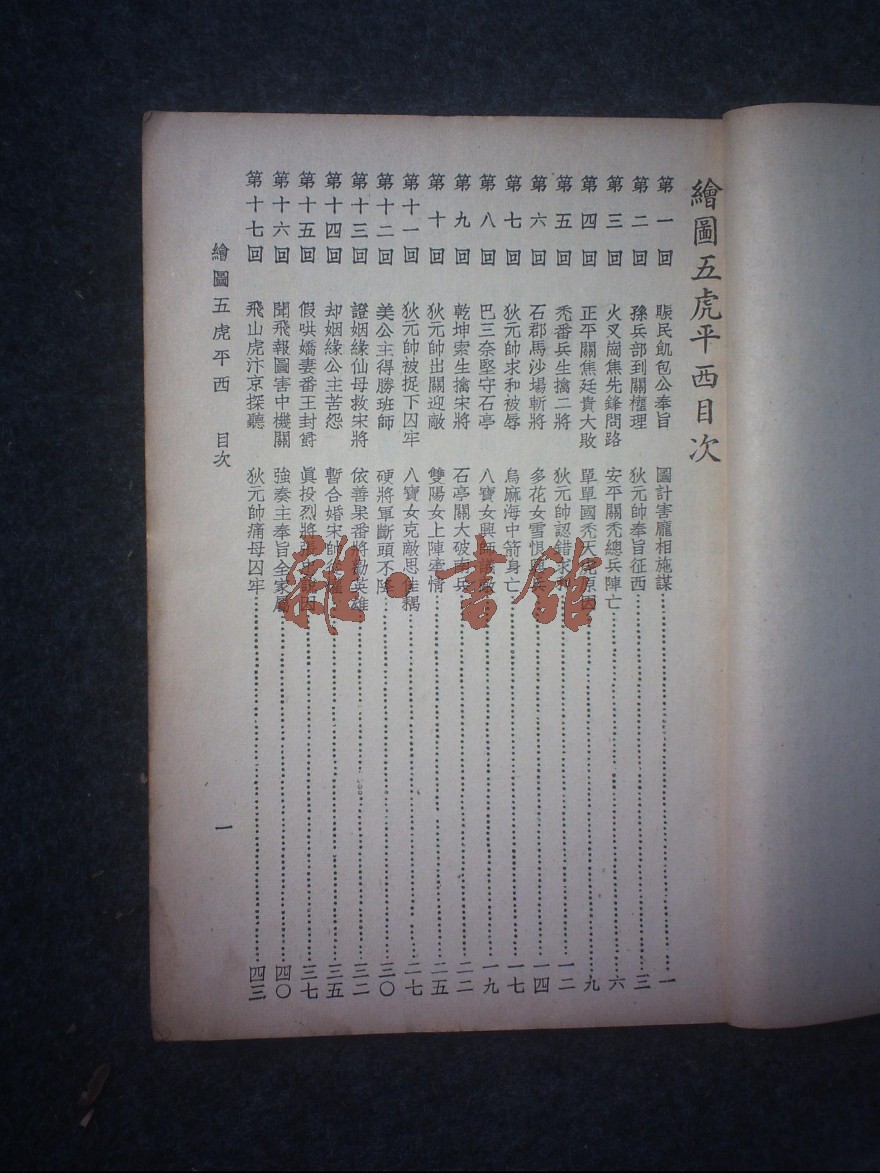 繪圖五虎平西目次
第一回 賑民飢包公奉旨 圖計害龐相施謀 一
第二回 孫兵部到關權理 狄元帥奉旨征西 三
第三回 火叉崗焦先鋒問路 安平關禿總兵陣亡 六
第四回 正平關焦廷貴大敗 單單國禿天虎原因 九
第五回 禿番兵生擒二將 狄元帥認錯求 一二
第六回 石郡馬沙場斬將 多花女雪恨 兵 一四
第七回 狄元帥求和被辱 烏麻海中箭身亡 一七
第八回 巴三奈堅守石亭 八寶女興師 一九
第九回 乾坤索生擒宋將 石亭關大破 兵 二二
第十回 狄元帥出關迎敵 雙陽女上陣牽情 二五
第十一回 狄元帥被捉下囚牢 八寶女克敵思佳耦 二七
第十二回 美公主得勝班師 硬將軍斷頭不降 三〇
第十三回 證姻緣仙母救宋將 依善果番將勸英雄 三二
第十四回 却姻緣公主苦怨 暫合婚宋帥 三五
第十五回 假哄嬌妻番王封爵 眞投烈將 三七
第十六回 聞飛報圖害中機關 強奏主奉旨全家屬 四〇
第十七回 飛山虎汴京探聽 狄元帥痛母囚牢 四三
繪圖五虎平西 目次 一
雜·書館